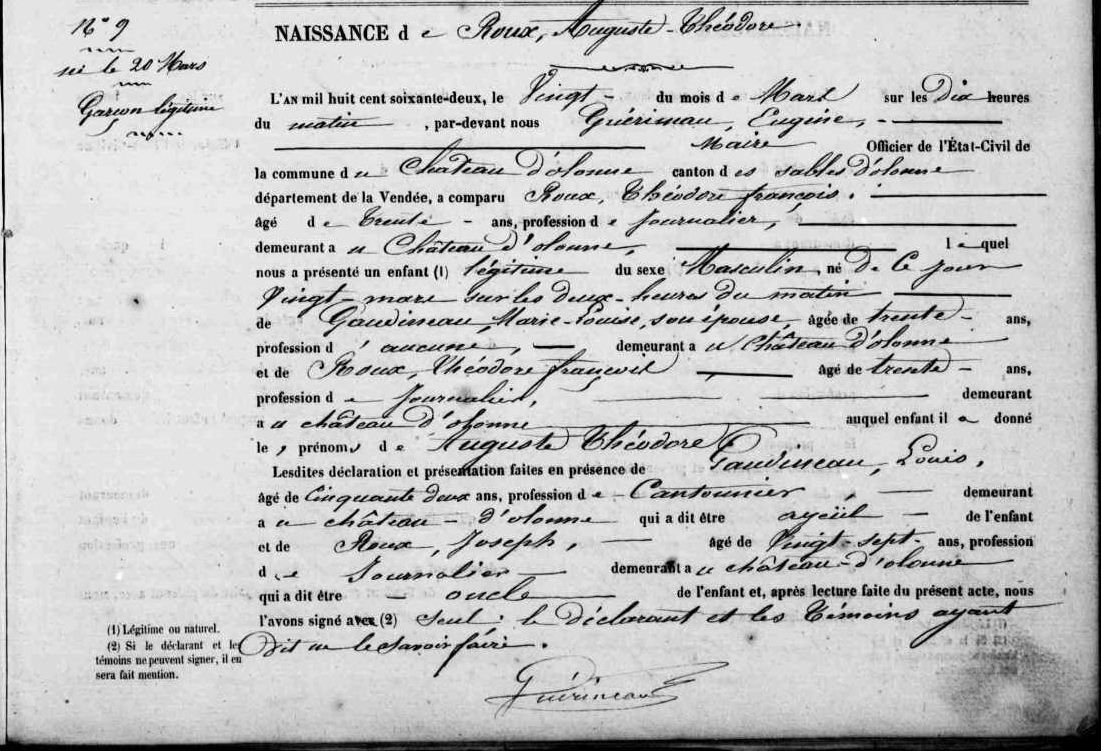 N° 9
né le 20 Mars
Garçon légitime
NAISSANCE de Roux, Auguste-Théodore
L'AN mil huit cent soixante-deux, le Vingt du mois de Mars sur les Dix heures
du matin, par-devant nous Guérineau, Eugène,
Maire Officier de l'État-Civil de
la commune du Château d'olonne canton des sables d'olonne
département de la Vendée, a comparu Roux, Théodore françois.
âgé de Trente ans, profession de Journalier,
demeurant au Château d'olonne, lequel
nous a présenté un enfant (1) légitime du sexe Masculin, né De Ce jour
Vingt-mars sur les deux-heures du matin
de Gaudineau, Marie-Louise, son épouse, âgée de trente ans,
profession d'aucune, demeurant au Château d'olonne
et de Roux, Théodore françois, âgé de trente ans,
profession de Journalier, demeurant
au château d'olonne auquel enfant il a donné
les prénoms de Auguste Théodore
Lesdites déclaration et présentation faites en présence de Gaudineau, Louis,
âgé de Cinquante deux ans, profession de Cantonnier, demeurant
au château-d'olonne qui a dit être ayeül de l'enfant
et de Roux, Joseph, âgé de Vingt-sept ans, profession
de Journalier demeurant au château-d'olonne
qui a dit être oncle de l'enfant et, après lecture faite du présent acte, nous
l'avons signé avec (2) Seul : le Déclarant et les Témoins ayant
Dit ne le Savoir faire.
(1) Légitime ou naturel.
(2) Si le déclarant et les
témoins ne peuvent signer, il en
sera fait mention.
Guérineau